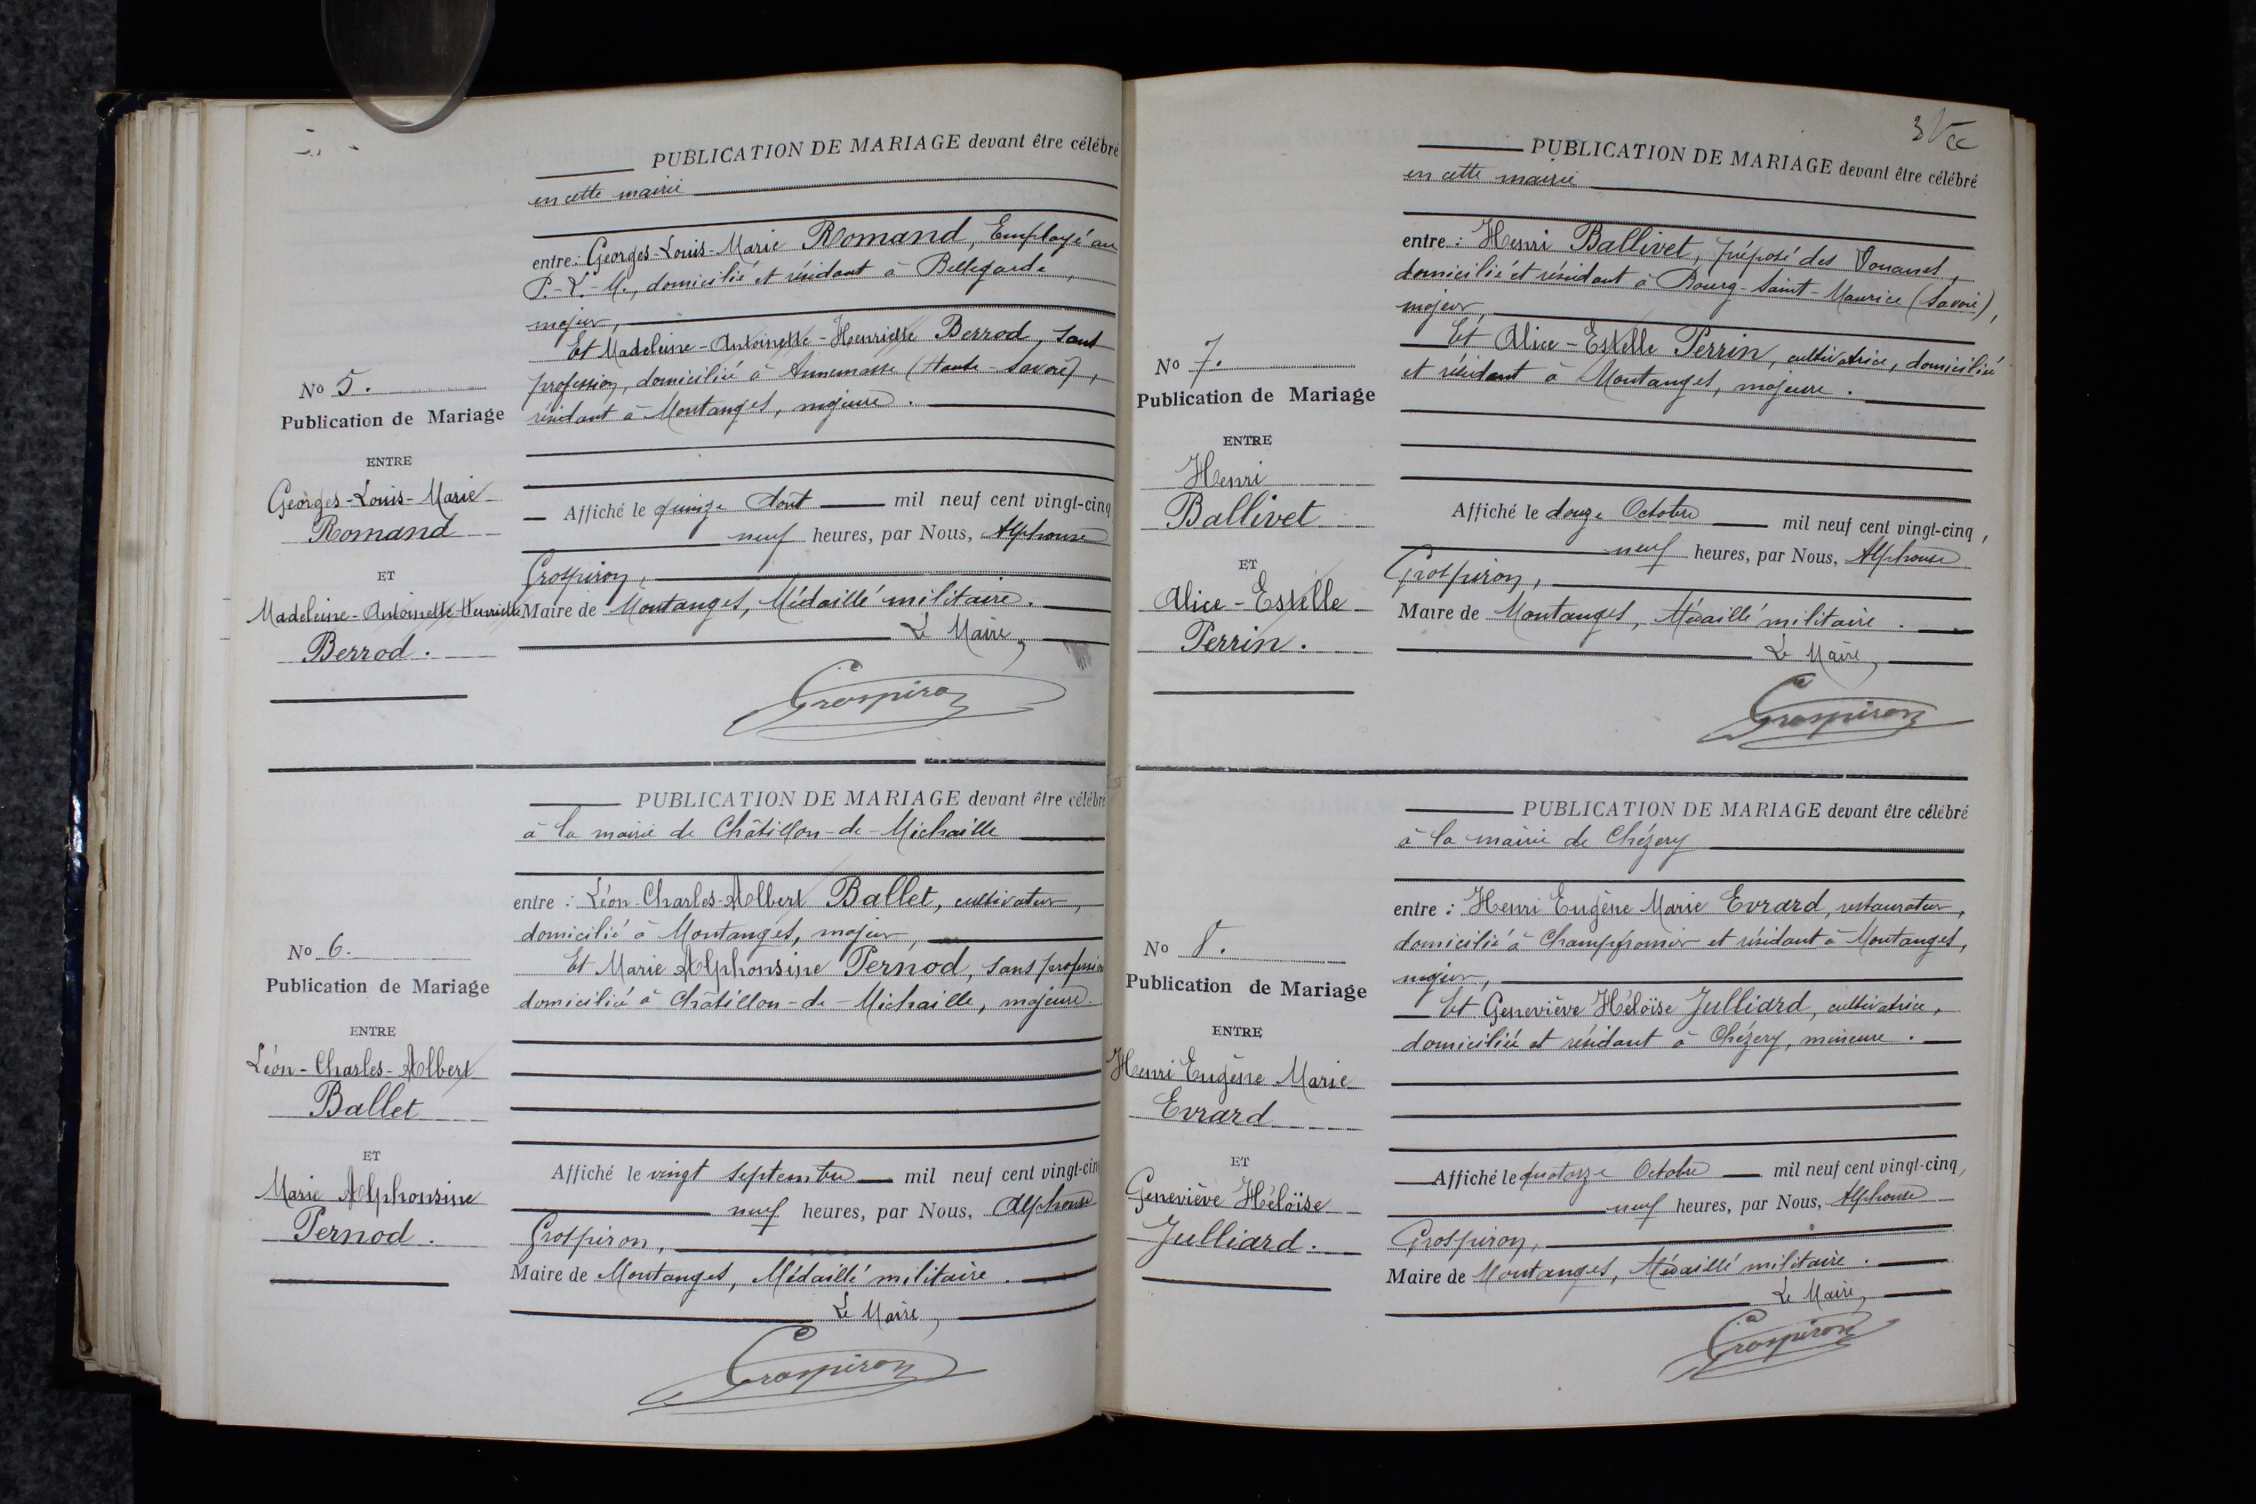 PUBLICATION DE MARIAGE devant être célébré
en cette mairie
entre : Georges-Louis-Marie Romand, Employé au
P.-L.-M., domicilié et résidant à Bellegarde,
majeur,
Et Madeleine-Antoinette-Henriette Berrod, sans
profession, domiciliée à Annemasse (Haute-Savoie),
résidant à Montanges, majeure.
No 5.
Publication de Mariage
ENTRE
Georges-Louis-Marie
Romand
ET
Madeleine-Antoinette-Henriette
Berrod.
Affiché le quinze Août mil neuf cent vingt-cinq
neuf heures, par Nous, Alphonse
Grospiron,
Maire de Montanges, Médaillé militaire.
Le Maire,
Grospiron
PUBLICATION DE MARIAGE devant être célébré
à la mairie de Châtillon-de-Michaille
entre : Léon-Charles-Albert Ballet, cultivateur,
domicilié à Montanges, majeur,
Et Marie Alphonsine Pernod, sans profession
domiciliée à Châtillon-de-Michaille, majeure.
No 6.
Publication de Mariage
ENTRE
Léon-Charles-Albert
Ballet
ET
Marie Alphonsine
Pernod.
Affiché le vingt septembre mil neuf cent vingt-cin
neuf heures, par Nous, Alphonse
Grospiron,
Maire de Montanges, Médaillé militaire.
Le Maire,
Grospiron
PUBLICATION DE MARIAGE devant être célébré
en cette mairie
entre : Henri Ballivet, préposé des Douanes,
domicilié et résidant à Bourg-Saint-Maurice (Savoie),
majeur,
Et Alice-Estelle Perrin, cultivatrice, domiciliée
et résidant à Montanges, majeure.
No 7.
Publication de Mariage
ENTRE
Henri
Ballivet
ET
Alice-Estelle
Perrin.
Affiché le douze Octobre mil neuf cent vingt-cinq,
neuf heures, par Nous, Alphonse
Grospiron,
Maire de Montanges, Médaillé militaire.
Le Maire,
Grospiron
PUBLICATION DE MARIAGE devant être célébré
à la mairie de Chézery
entre : Henri Eugène Marie Evrard, restaurateur,
domicilié à Champfromier et résidant à Montanges,
majeur,
Et Geneviève Héloïse Julliard, cultivatrice,
domiciliée et résidant à Chézery, mineure.
No 8.
Publication de Mariage
ENTRE
Henri Eugène Marie
Evrard
ET
Geneviève Héloïse
Julliard.
Affiché le quatorze Octobre mil neuf cent vingt-cinq,
neuf heures, par Nous, Alphonse
Grospiron,
Maire de Montanges, Médaillé militaire.
Le Maire,
Grospiron